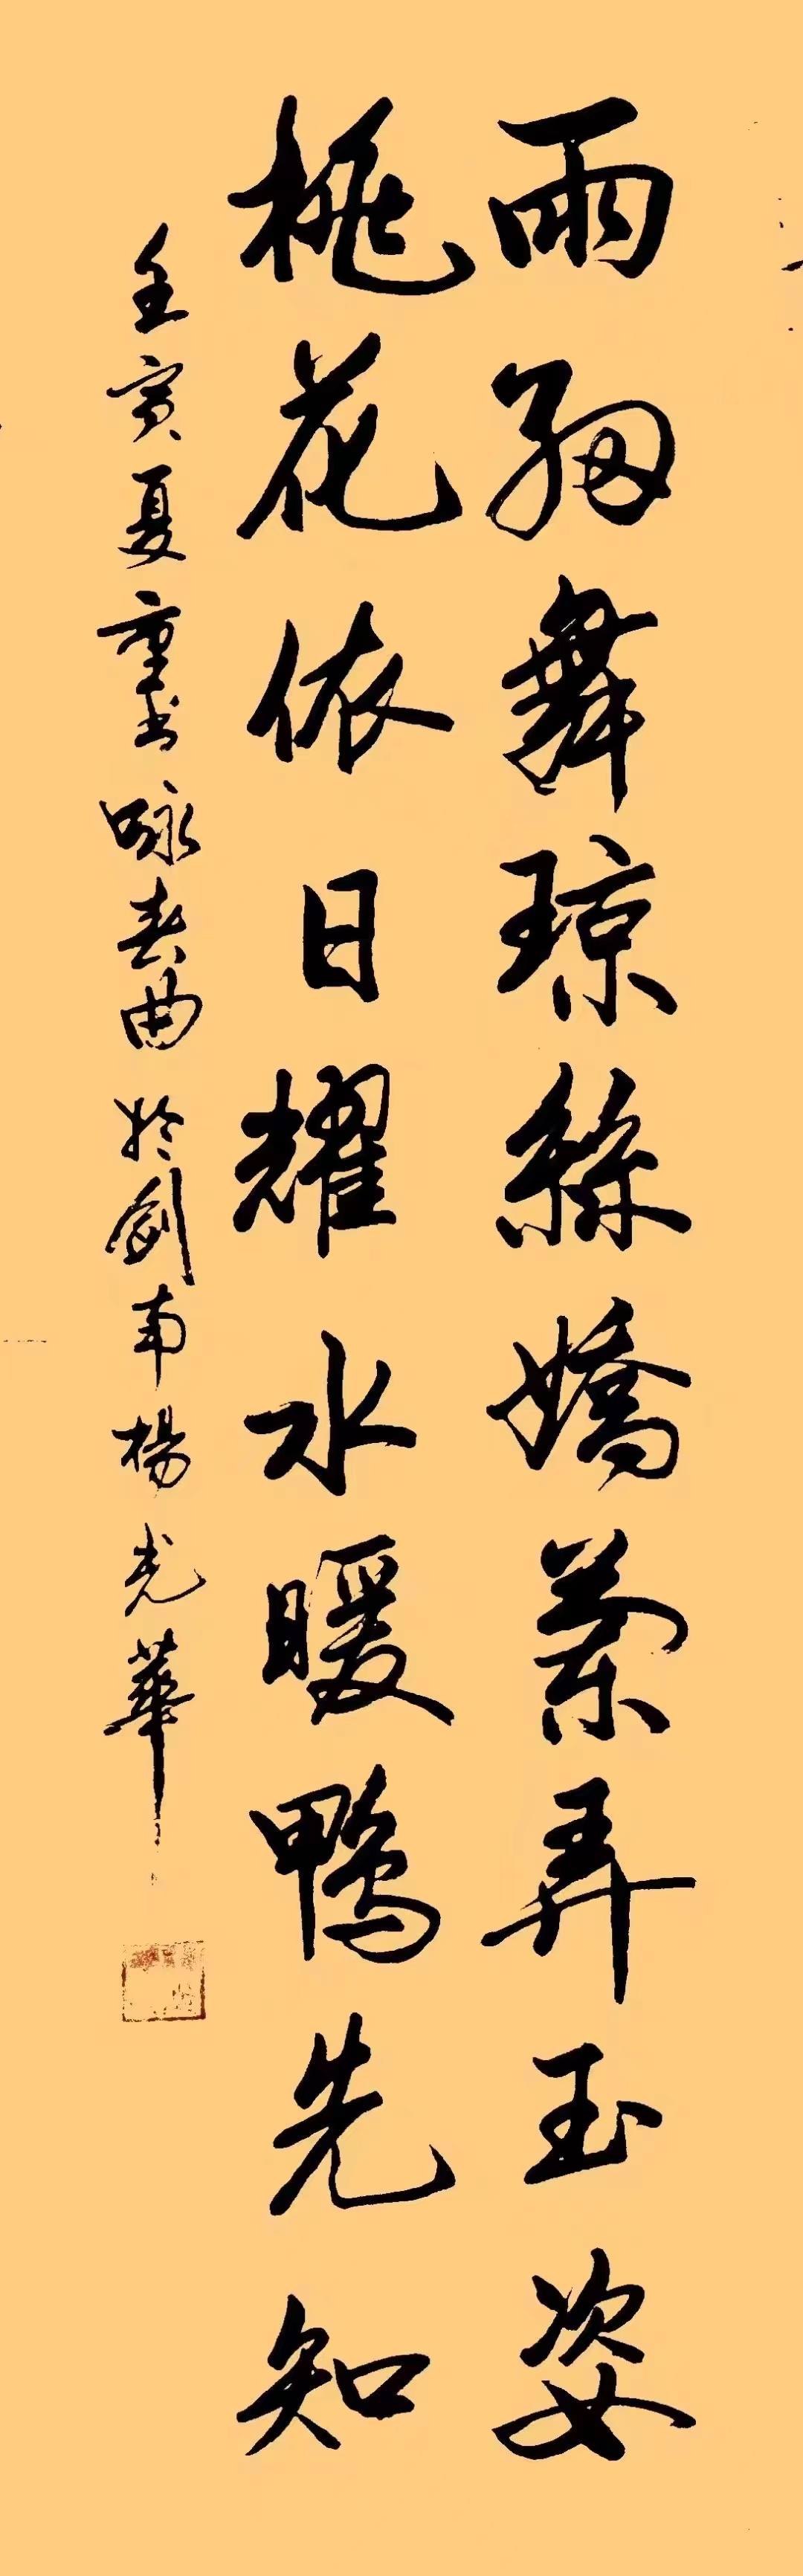 雨細舞琼絲嬌蘭弄玉姿
桃花依日耀水暖鴨先知
壬寅夏重书咏春曲於劍南楊光華